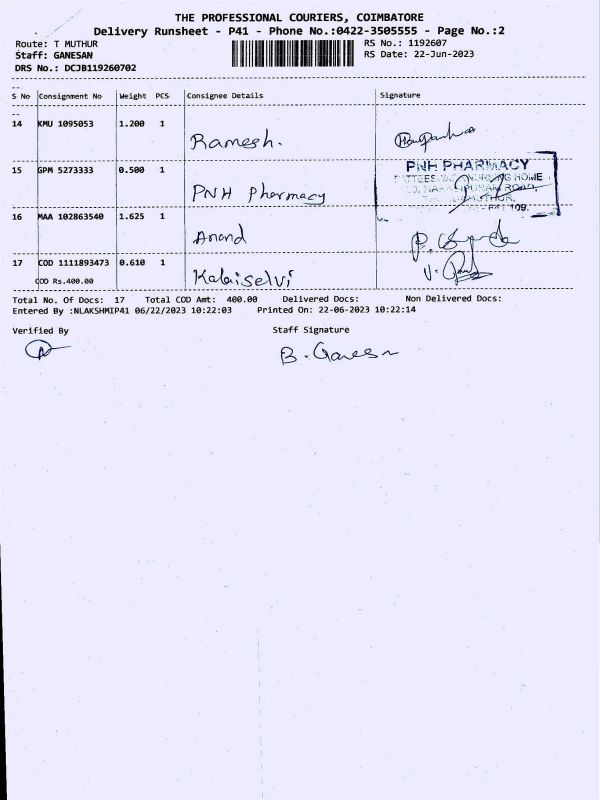 THE PROFESSIONAL COURIERS, COIMBATORE
Delivery Runsheet - P41 - Phone No.:0422-3505555 - Page No.:2
Route: T MUTHUR RS No.: 1192607
Staff: GANESAN RS Date: 22-Jun-2023
DRS No.: DCJB119260702
S No Consignment No Weight PCS Consignee Details Signature
14 KMU 1095053 1.200 1
Ramesh.
15 GPM 5273333 0.500 1 PNH PHARMACY
NURSING HOME
ROAD,
PNH Pharmacy
109.
16 MAA 102863540 1.625 1
Anand
17 COD 1111893473 0.610 1
COD Rs.400.00 Kalaiselvi
Total No. Of Docs: 17 Total COD Amt: 400.00 Delivered Docs: Non Delivered Docs:
Entered By :NLAKSHMIP41 06/22/2023 10:22:03 Printed On: 22-06-2023 10:22:14
Verified By Staff Signature
B. Ganesn